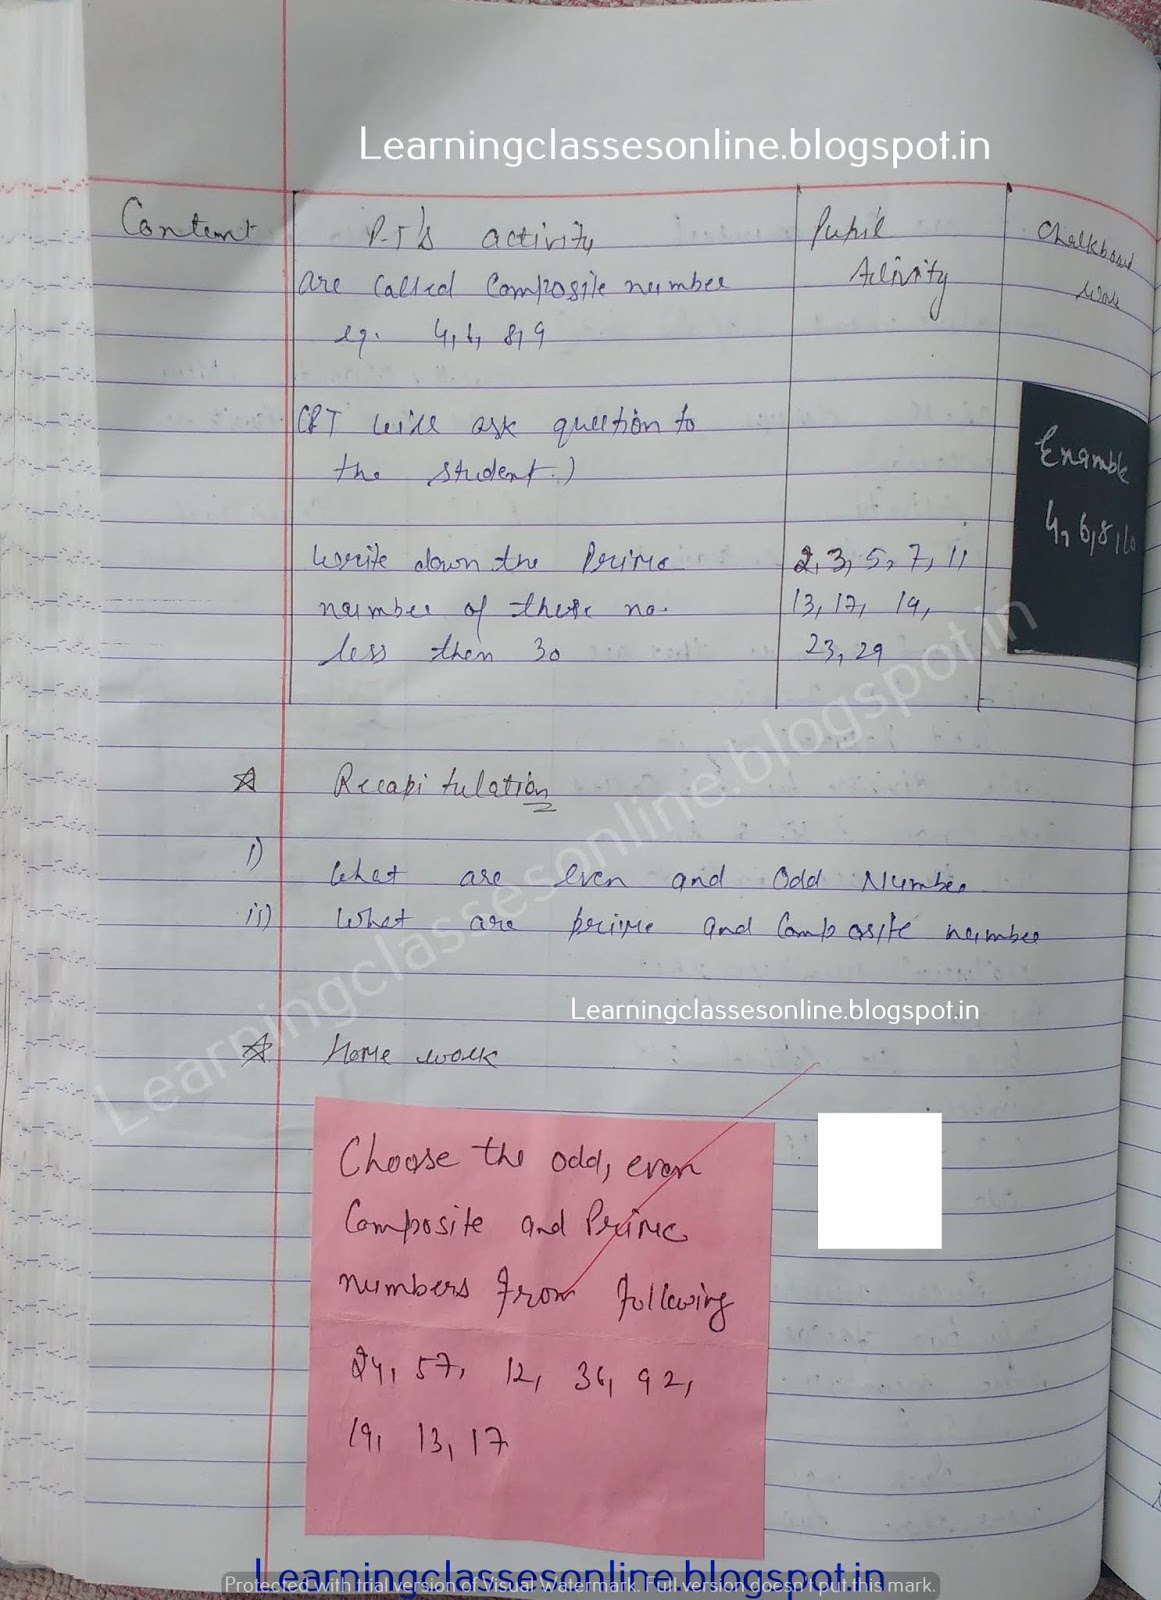 Learningclassesonline.blogspot.in
Content P.T's activity Pupil Activity Chalkboard work
are called Composite number
eg. 4, 6, 8, 9
(PT will ask question to
the student.)
Example
4, 6, 8, 10
Write down the Prime
number of these no.
less then 30
2, 3, 5, 7, 11
13, 17, 19,
23, 29
Learningclassesonline.blogspot.in
☆ Recapitulation
i) What are even and Odd Number
ii) What are prime and Composite number
Learningclassesonline.blogspot.in
☆ Home work
Choose the odd, even
Composite and Prime
numbers from following
24, 57, 12, 36, 92,
19, 13, 17
Learningclassesonline.blogspot.in
Protected with trial version of Visual Watermark. Full version doesn't put this mark.